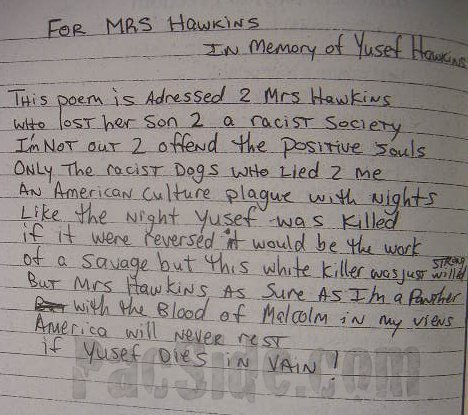 FOR MRS HAWKINS
IN Memory of Yusef Hawkins
THis poem is Adressed 2 Mrs Hawkins
who lost her son 2 a racist Society
I'm NOT OUT 2 offend the positive souls
ONLY The racist Dogs WHO Lied 2 me
AN AMERICAN Culture plague with Nights
Like the Night Yusef was Killed
if it were reversed it would be the work
of a savage but this white killer was just strong willed
BUT Mrs Hawkins As Sure As I'm a Panther
with the Blood of Malcolm in my viens
America will Never rest
if Yusef Dies in VAIN!
PacSide.com